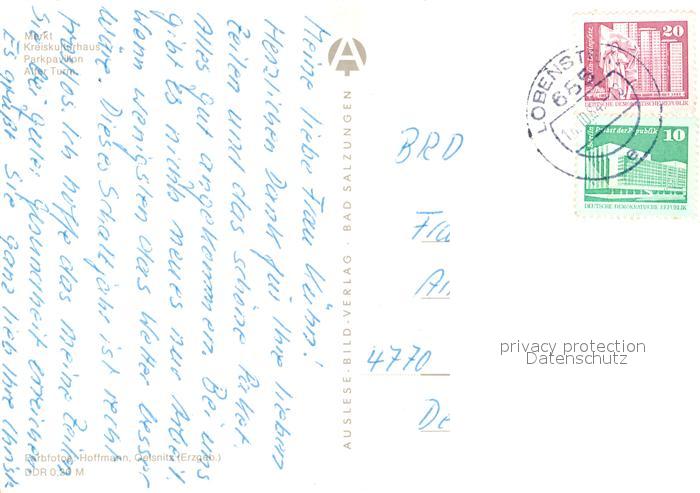 Markt
Kreiskulturhaus
Parkpavillon
Alter Turm
Meine liebe Frau Kühn!
Herzlichen Dank für Ihre lieben
Zeilen und das schöne Paket.
Alles gut angekommen. Bei uns
gibt Es nichts neues nur Arbeit.
Wenn wenigsten das Wetter besser
wäre. Dieses Schaltjahr ist recht
Ich hoffe das meine Zeilen
Sie bei guter Gesundheit erreichen
Es grüße Sie ganz lieb Ihre
Farbfoto: Hoffmann, Oelsnitz (Erzgeb.)
DDR 0,20 M
AUSLESE-BILD-VERLAG · BAD SALZUNGEN
BRD
Fra
4770
20
DEUTSCHE DEMOKRATISCHE REPUBLIK
LOBENST
685
e
Palast der Republik
10
DEUTSCHE DEMOKRATISCHE REPUBLIK
privacy protection
Datenschutz